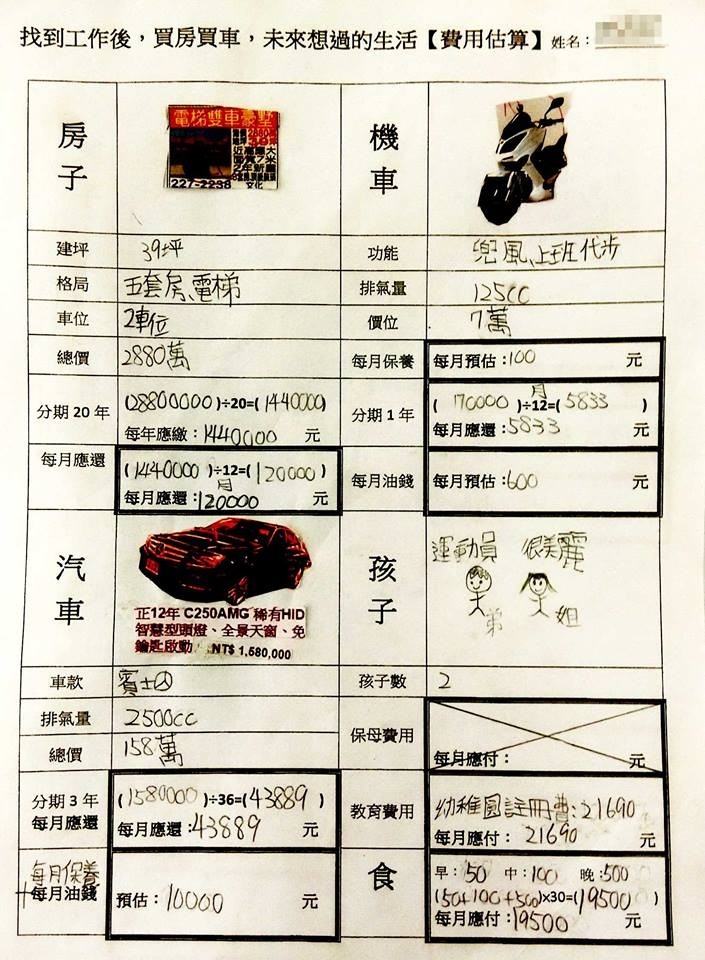 找到工作後，買房買車，未來想過的生活【費用估算】姓名：
房子
電梯雙車豪墅
2880萬
39坪
近嘉庚大
面寬7米
2年新屋
227-2238
文化
機車
建坪 39坪
功能 兜風、上班代步
格局 五套房、電梯
排氣量 125cc
車位 2車位
價位 7萬
總價 2880萬
每月保養 每月預估：100 元
分期 20 年 (28800000)÷20=(1440000)
每年應繳：1440000 元
分期 1 年 (70000)÷12=(5833)
月
每月應還：5833 元
每月應還 (1440000)÷12=(120000)
月
每月應還：120000 元
每月油錢 每月預估：600 元
汽車
正12年 C250AMG 稀有HID
智慧型頭燈、全景天窗、免
鑰匙啟動 NT$ 1,580,000
孩子
運動員 很美麗
弟 姐
車款 賓士
孩子數 2
排氣量 2500cc
總價 158萬
保母費用
每月應付： 元
分期 3 年
每月應還
(1580000)÷36=(43889)
每月應還：43889 元
教育費用
幼稚園註冊費：21690
每月應付：21690 元
每月保養
+每月油錢
預估：10000 元
食
早：50 中：100 晚：500
(50+100+500)×30=(19500)
每月應付：19500 元